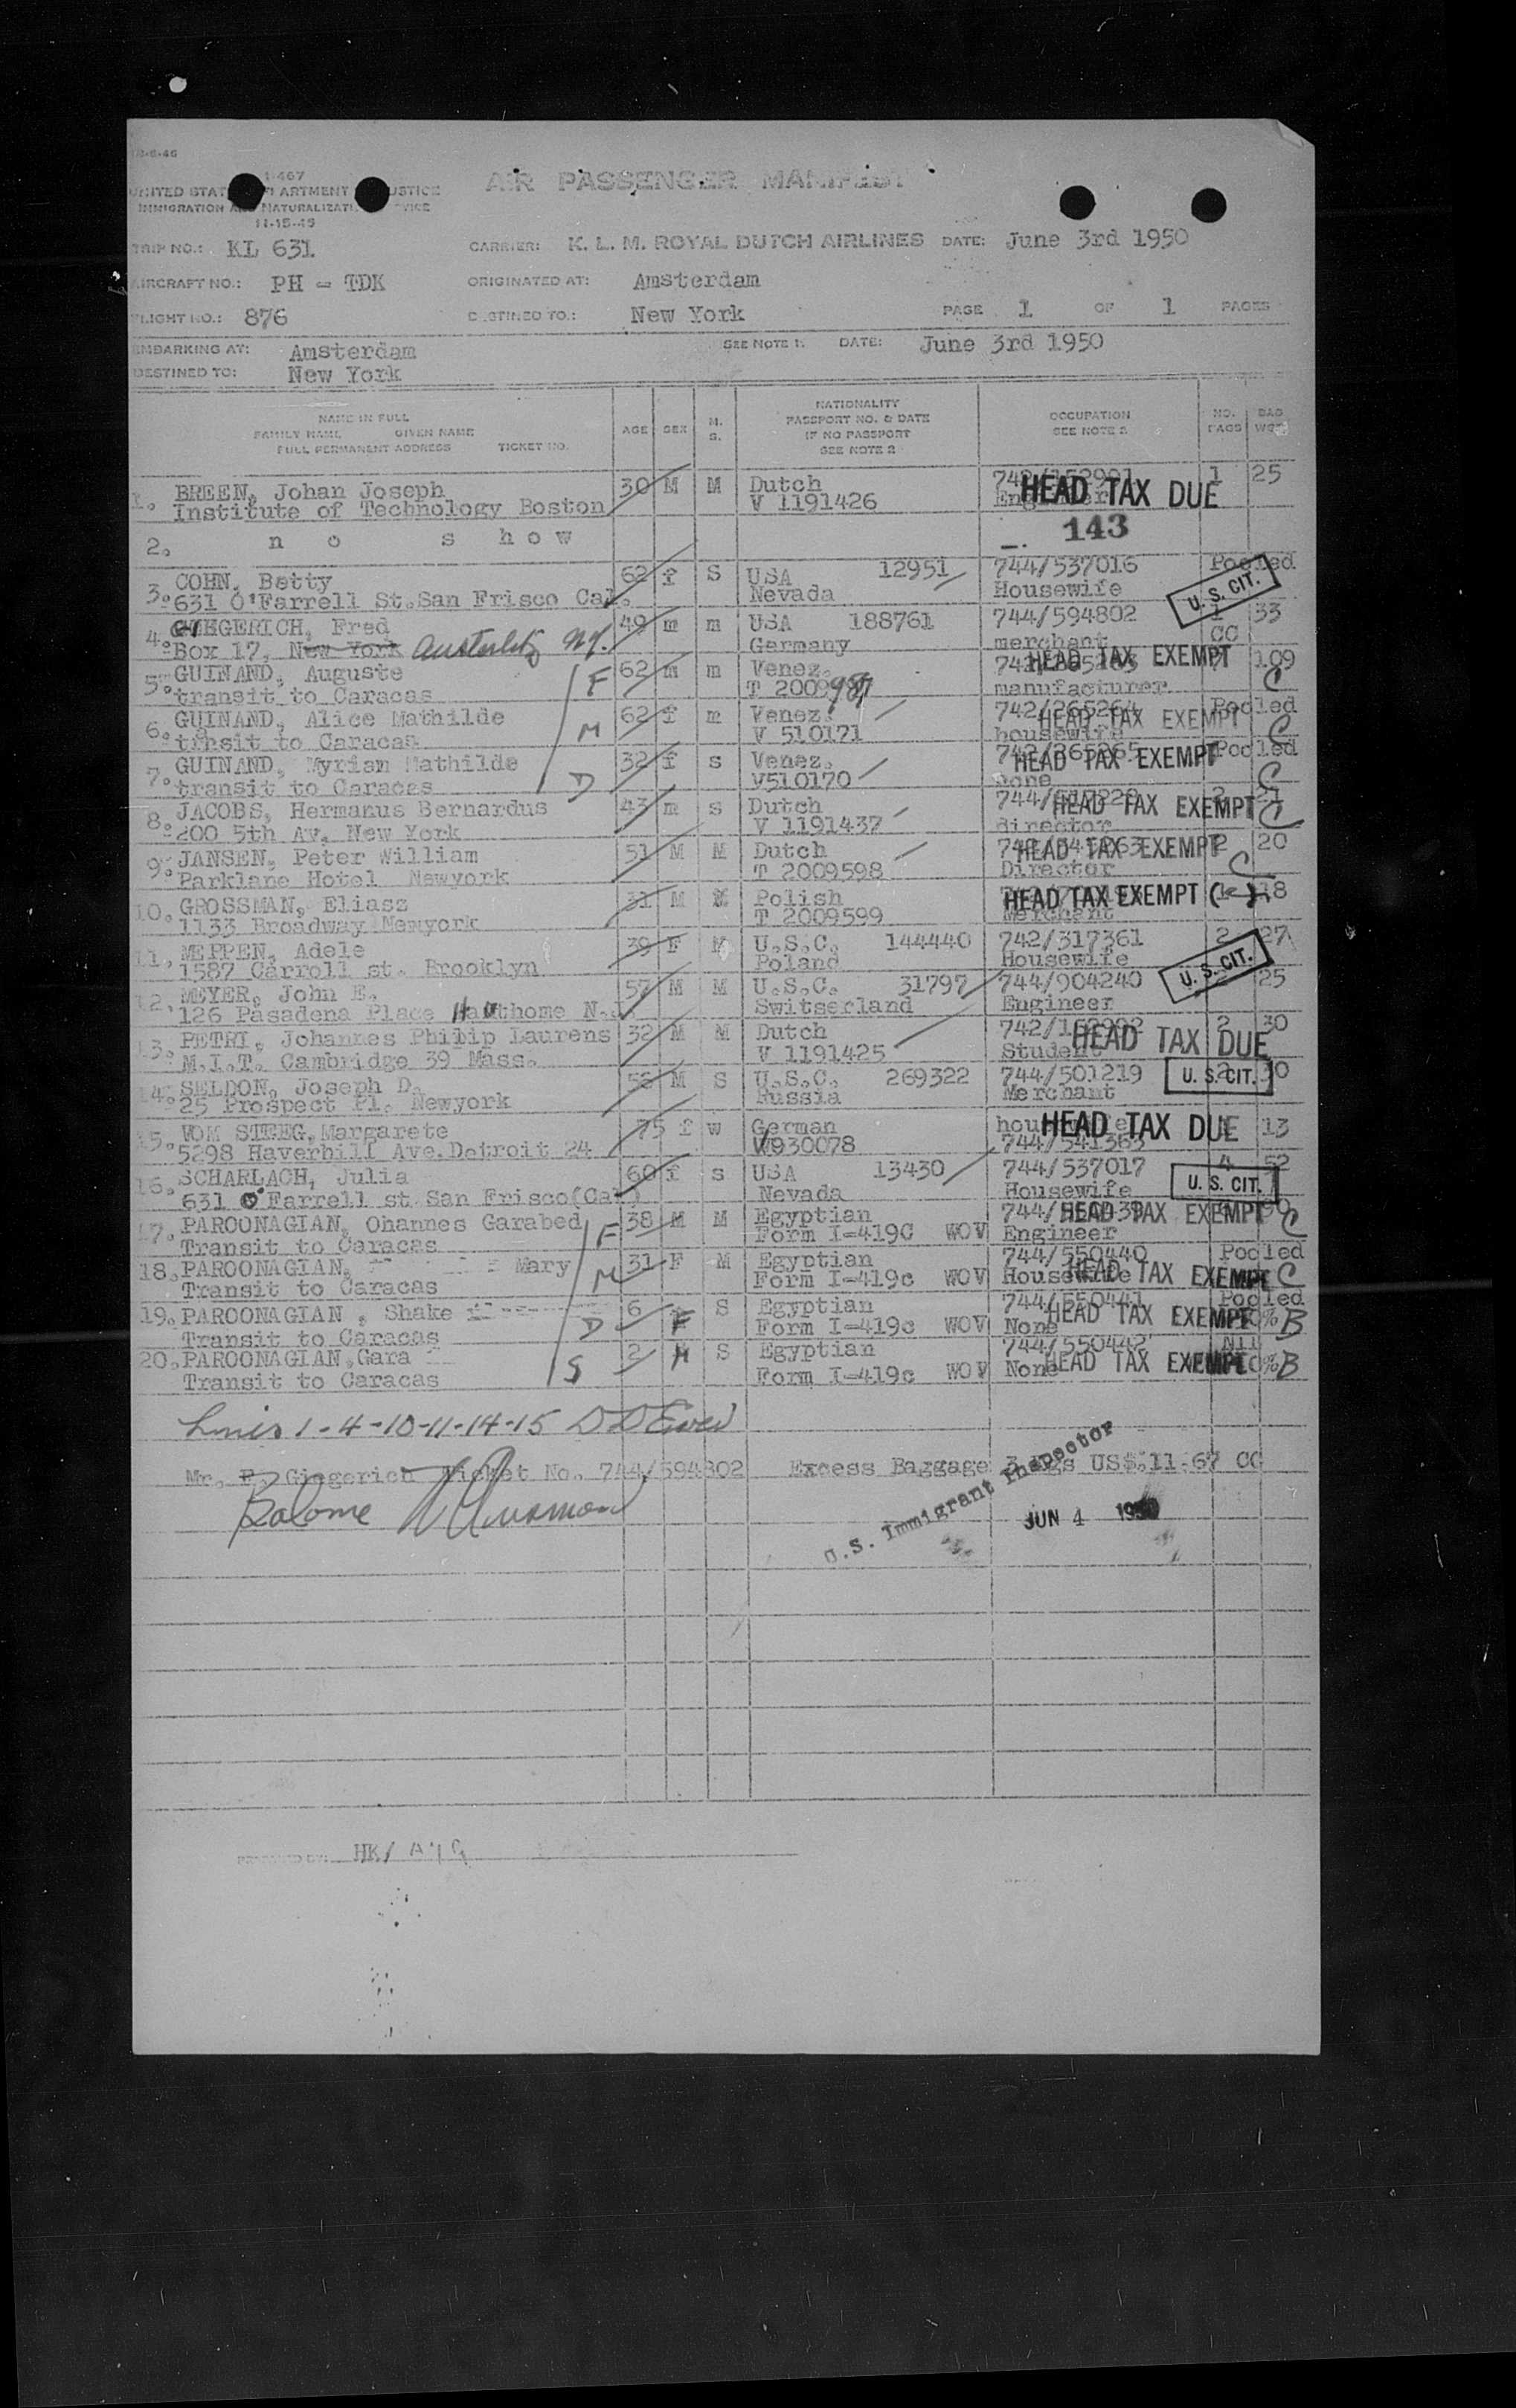 I-467
UNITED STATES DEPARTMENT OF JUSTICE
IMMIGRATION AND NATURALIZATION SERVICE
11-15-45
AIR PASSENGER MANIFEST
TRIP NO.: KL 631 CARRIER: K. L. M. ROYAL DUTCH AIRLINES DATE: June 3rd 1950
AIRCRAFT NO.: PH - TDK ORIGINATED AT: Amsterdam
FLIGHT NO.: 876 DESTINED TO.: New York PAGE 1 OF 1 PAGES
EMBARKING AT: Amsterdam SEE NOTE 1. DATE: June 3rd 1950
DESTINED TO: New York
NAME IN FULL
FAMILY NAME GIVEN NAME
FULL PERMANENT ADDRESS TICKET NO.
AGE SEX M. S.
NATIONALITY
PASSPORT NO. & DATE
IF NO PASSPORT
SEE NOTE 2
OCCUPATION
SEE NOTE 2
NO. BAGS
BAG WGT
1. BREEN, Johan Joseph 30 M M Dutch 1 25
Institute of Technology Boston V 1191426 HEAD TAX DUE
143
2. n o s h o w
3. COHN, Betty 62 f S USA 12951 744/537016 Pooled
631 O'Farrell St.San Frisco Cal. Nevada Housewife U. S. CIT.
4. GIEGERICH, Fred 49 m m USA 188761 744/594802 1 33
Box 17, New York Austerlitz N.Y. Germany merchant CC
5. GUINAND, Auguste F 62 m m Venez. HEAD TAX EXEMPT 109
transit to Caracas T 2009 manufacturer C
6. GUINAND, Alice Mathilde 62 f m Venez. 742/265264 Pooled
trnsit to Caracas M V 510171 housewife HEAD TAX EXEMPT C
7. GUINAND, Myriam Mathilde 32 f s Venez. 742/265265 Pooled
transit to Caracas D V510170 none HEAD TAX EXEMPT C
8. JACOBS, Hermanus Bernardus 43 m s Dutch 2 21
200 5th Av. New York V 1191437 director HEAD TAX EXEMPT C
9. JANSEN, Peter William 51 M M Dutch HEAD TAX EXEMPT 2 20
Parklane Hotel Newyork T 2009598 Director C
10. GROSSMAN, Eliasz 31 M Polish HEAD TAX EXEMPT 18
1133 Broadway Newyork T 2009599 Merchant
11. MEPPEN, Adele 39 F M U.S.C. 144440 742/317361 2 27
1587 Carroll st. Brooklyn Poland Housewife U. S. CIT.
12. MEYER, John E. 57 M M U.S.C. 31797 744/904240 25
126 Pasadena Place Hawthorne N.J. Switserland Engineer
13. PETRI, Johannes Philip Laurens 32 M M Dutch 742/152992 2 30
M.I.T. Cambridge 39 Mass. V 1191425 Student HEAD TAX DUE
14. SELDON, Joseph D. 56 M S U.S.C. 269322 744/501219 2 30
25 Prospect Pl. Newyork Russia Merchant U. S. CIT.
15. VOM STEEG, Margarete 75 f w German housewife HEAD TAX DUE 13
5298 Haverhill Ave.Detroit 24 W930078 744/541363
16. SCHARLACH, Julia 60 f s USA 13430 744/537017 4 52
631 O'Farrell st San Frisco(Cal) Nevada Housewife U. S. CIT.
17. PAROONAGIAN, Ohannes Garabed F 38 M M Egyptian HEAD TAX EXEMPT 90 C
Transit to Caracas Form I-419C WOV Engineer
18. PAROONAGIAN, Mary M 31 F M Egyptian 744/550440 Pooled
Transit to Caracas Form I-419c WOV Housewife HEAD TAX EXEMPT C
19. PAROONAGIAN , Shake D 6 F S Egyptian 744/550441 Pooled
Transit to Caracas Form I-419c WOV None HEAD TAX EXEMPT B
20. PAROONAGIAN,Gara S 2 M S Egyptian 744/550442 Nil
Transit to Caracas Form I-419c WOV None HEAD TAX EXEMPT 10% B
1-4-10-11-14-15
Mr. F. Giegerich Ticket No. 744/594802 Excess Baggage 3 kgs US$.11.67 CC
U.S. Immigrant Inspector
JUN 4 1950
PREPARED BY: HK/